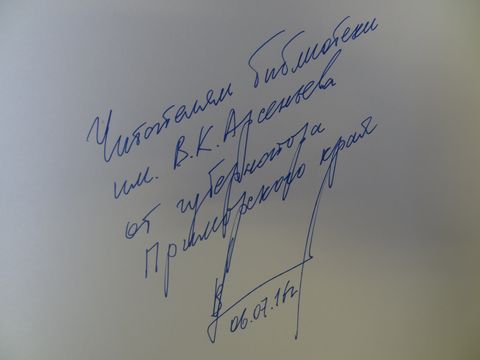 Читателям библиотеки
им. В.К. Арсеньева
от губернатора
Приморского края
06.07.16г